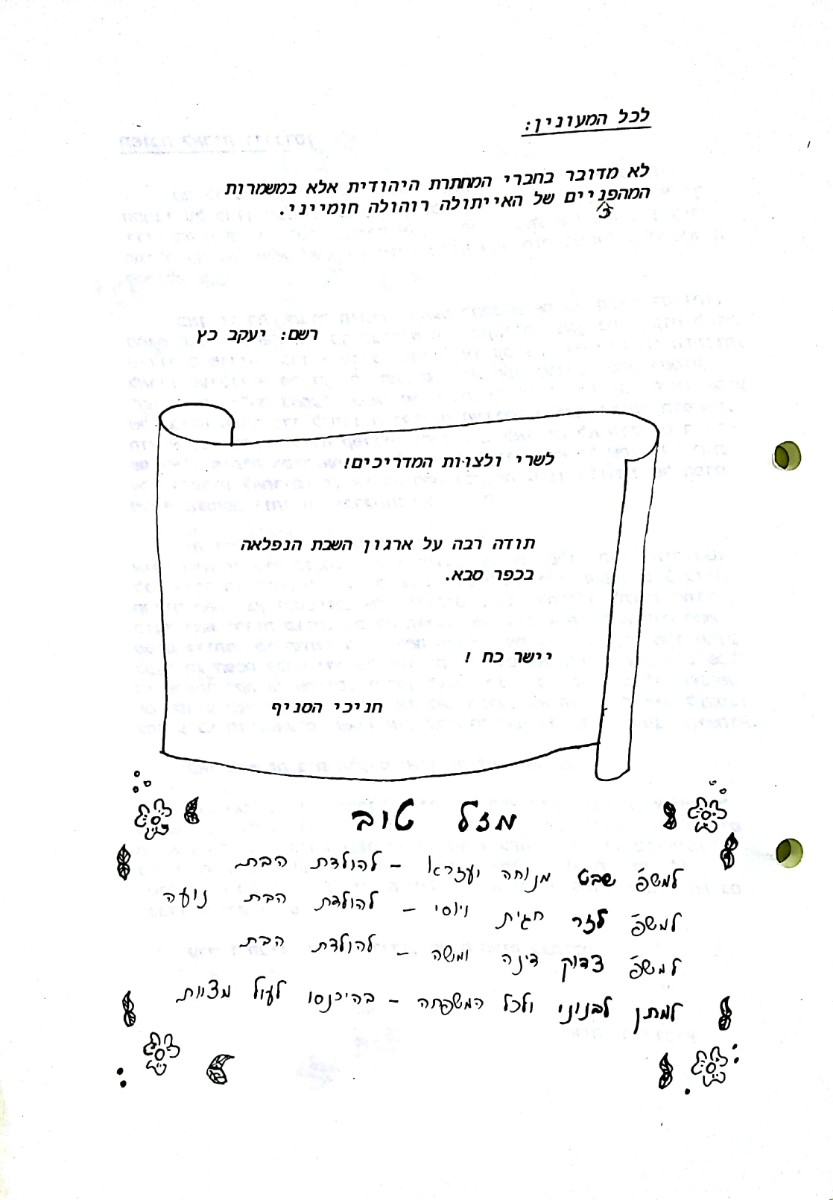 לכל המעונין:
לא מדובר בחברי המחתרת היהודית אלא במשמרות
המהפכניים של האייתולה רוהולה חומייני.
רשם: יעקב כץ
לשרי ולצוות המדריכים!
תודה רבה על ארגון השבת הנפלאה
בכפר סבא.
יישר כח !
חניכי הסניף
מזל טוב
למשפ' שבט מנוחה ועזרא - להולדת הבת
למשפ' לזר חגית ויוסי - להולדת הבת נויעה
למשפ' צדוק דינה ומשה - להולדת הבת
למתן לבניני ולכל המשפחה - בהיכנסו לעול מצוות